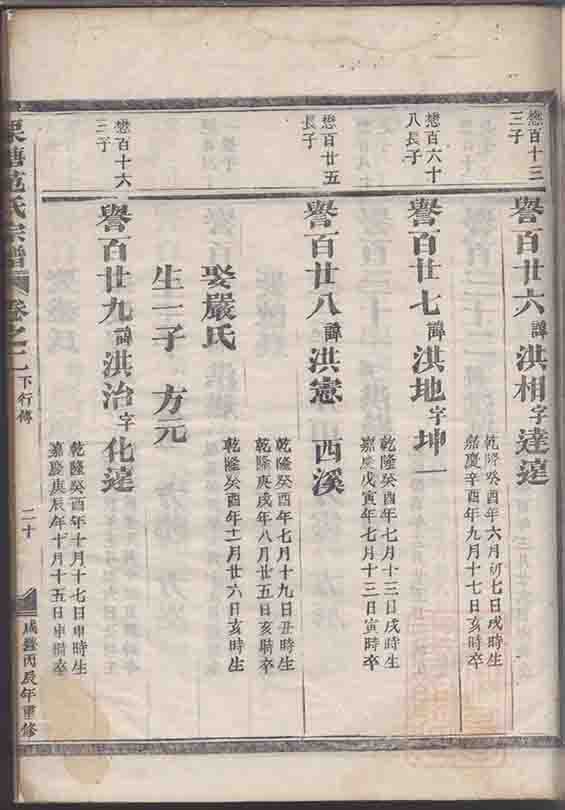 懋百十三
三子
譽百廿六諱洪相字達遠
乾隆癸酉年六月初七日戌時生
嘉慶辛酉年九月十七日亥時卒
懋百六十
八長子
譽百廿七諱洪地字坤一
乾隆癸酉年七月十三日戌時生
嘉慶戊寅年七月十三日寅時卒
懋百廿五
長子
譽百廿八諱洪憲 西溪
乾隆癸酉年七月十九日丑時生
乾隆庚戌年八月廿五日亥時卒
娶嚴氏
乾隆癸酉年十一月廿六日亥時生
生一子 方元
懋百十六
三子
譽百廿九諱洪治字化遠
乾隆癸酉年十月十七日申時生
嘉慶庚辰年十月十五日申時卒
栗塘范氏宗譜 卷之二 下行傳
二十
咸豐丙辰年重修